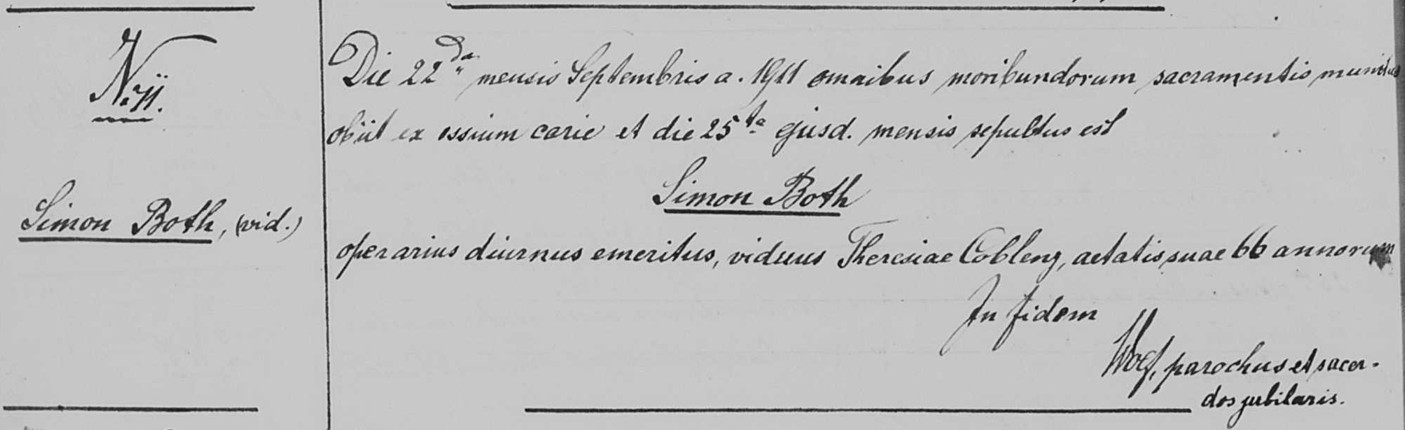 No 11.
Simon Both, (vid.)
Die 22da mensis Septembris a. 1911 omnibus moribundorum sacramentis munitus
obiit ex ossium carie et die 25ta ejusd. mensis sepultus est
Simon Both
operarius diurnus emeritus, viduus Theresiae Coblenz, aetatis suae 66 annorum
In fidem
parochus et sacer-
dos jubilaris.